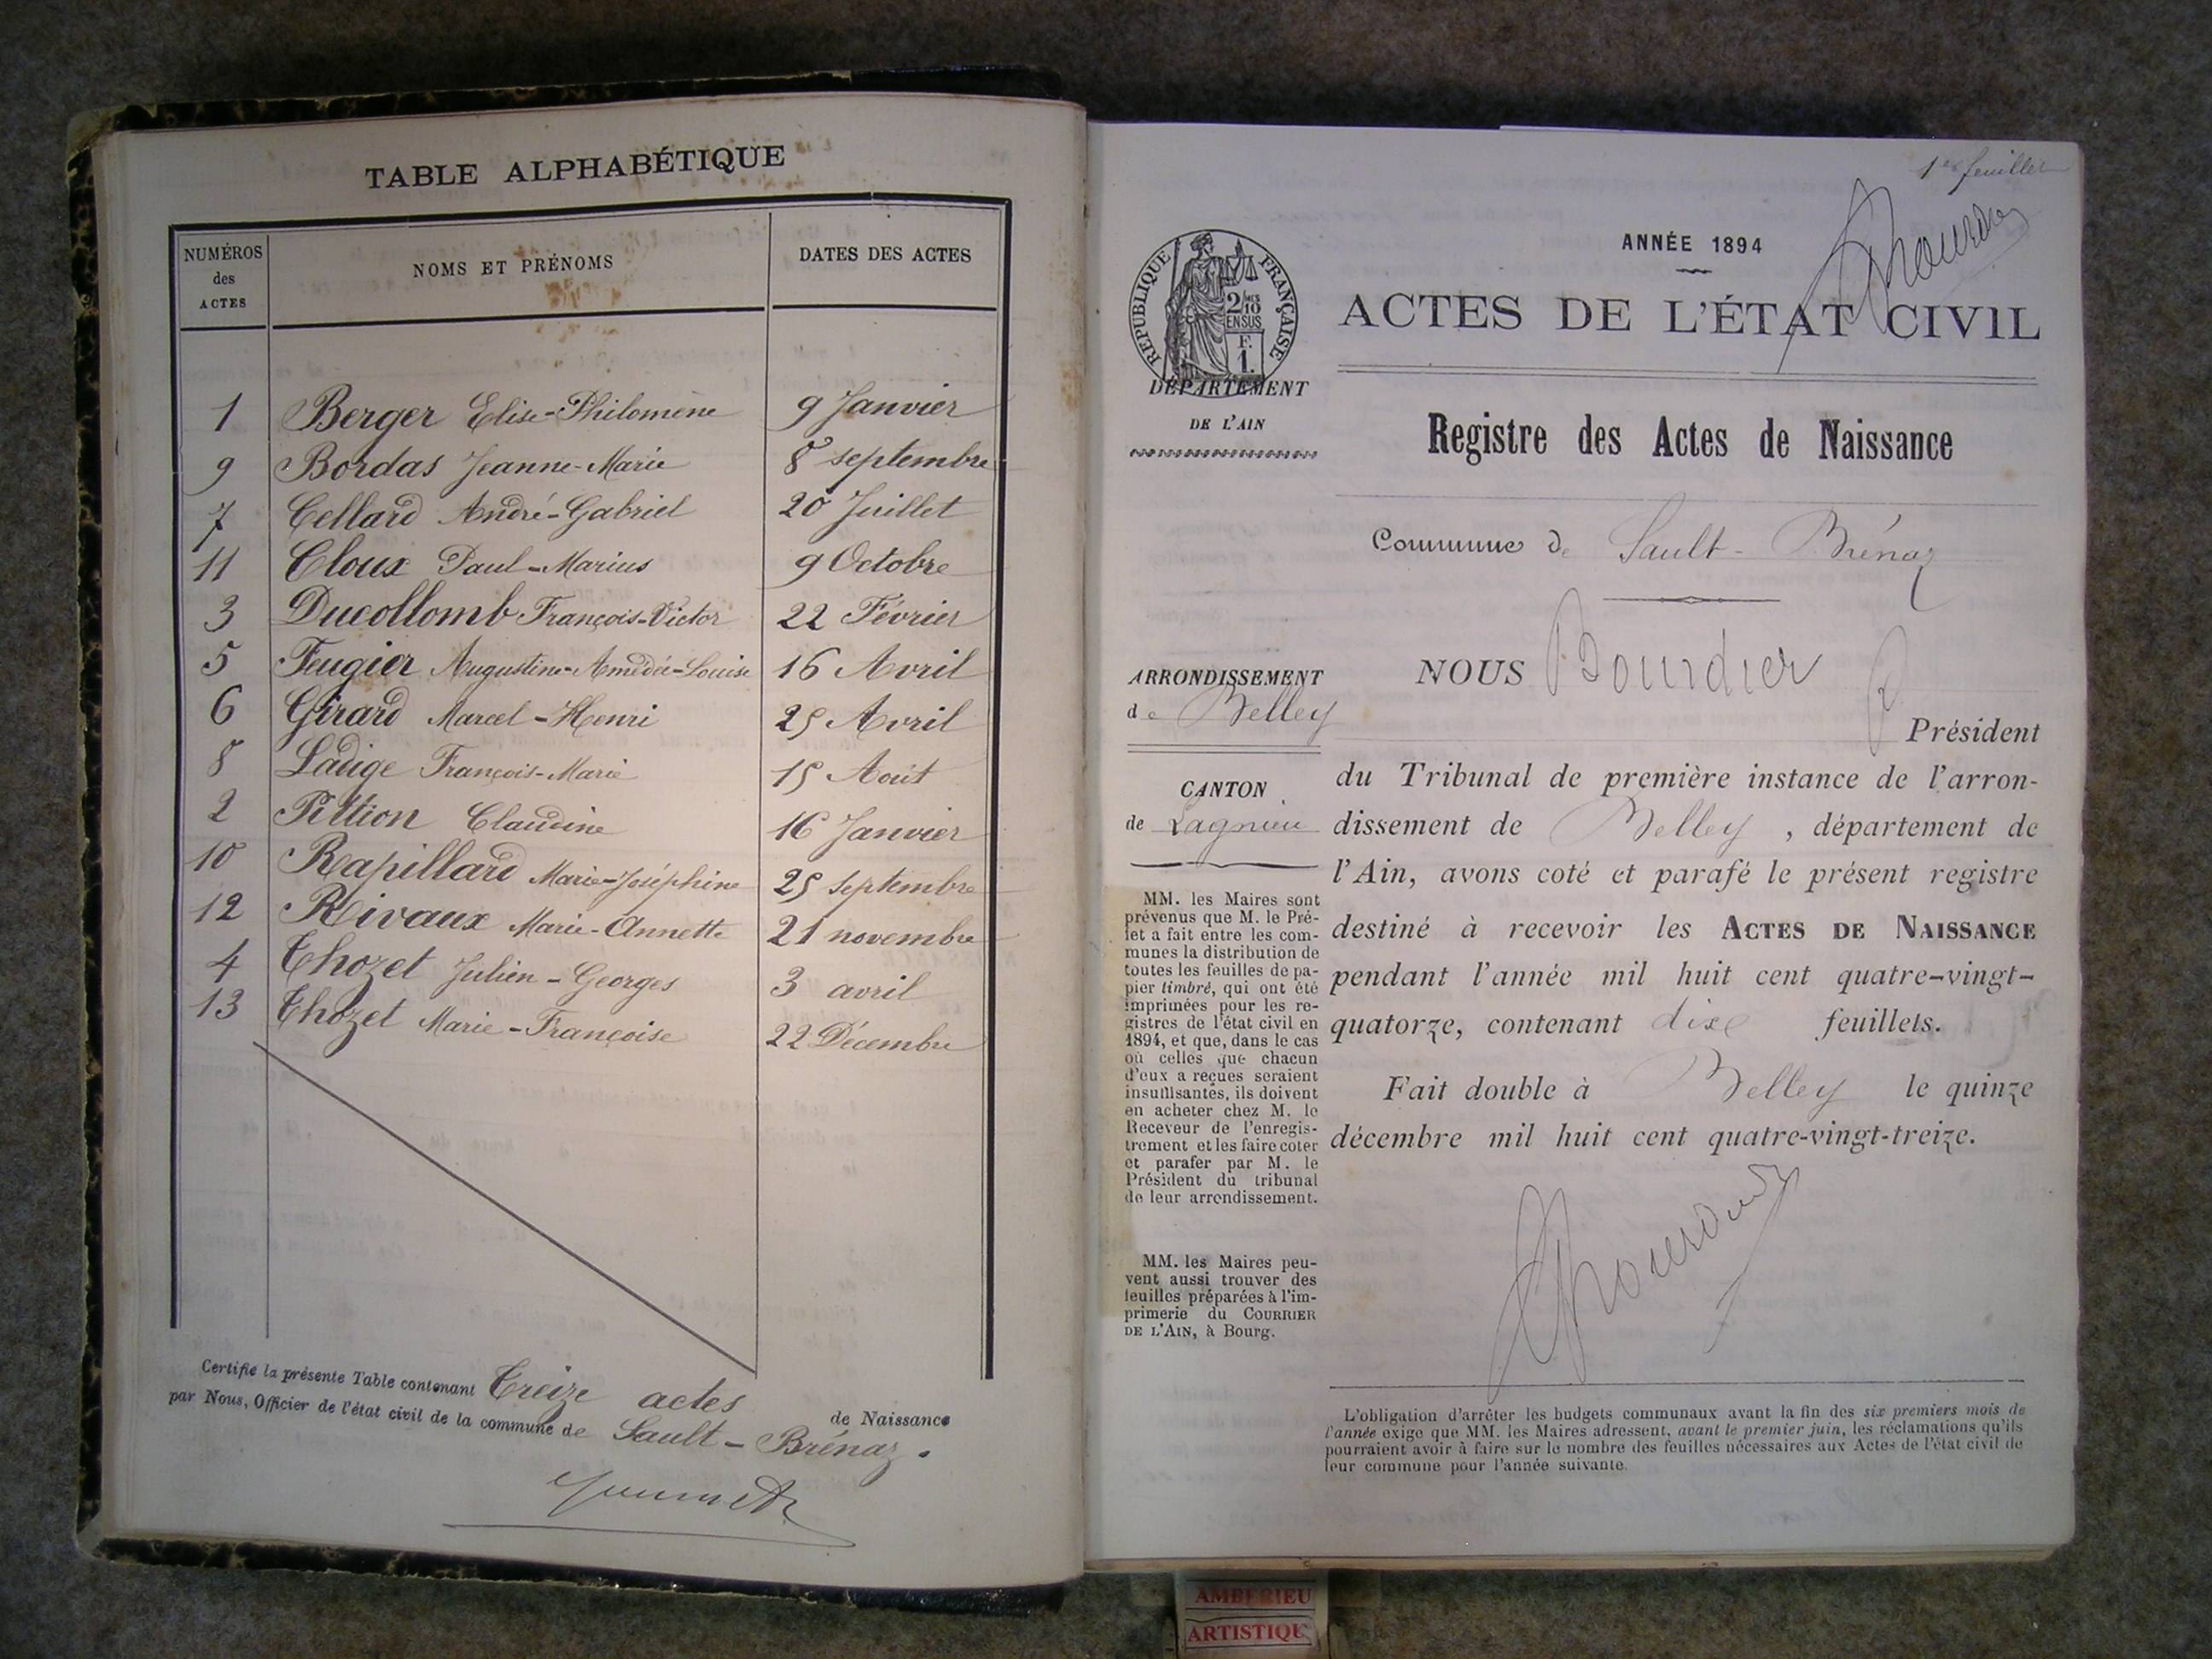 TABLE ALPHABÉTIQUE
NUMÉROS des ACTES
NOMS ET PRÉNOMS
DATES DES ACTES
1 Berger Elise-Philomène 9 Janvier
9 Bordas Jeanne-Marie 8 septembre
7 Cellard André-Gabriel 20 Juillet
11 Cloux Paul-Marius 9 Octobre
3 Ducollomb François-Victor 22 Février
5 Feugier Augustine-Amédée-Louise 16 Avril
6 Girard Marcel-Henri 25 Avril
8 Ladige François-Marie 15 Août
2 Pittion Claudine 16 Janvier
10 Rapillard Marie-Joséphine 25 septembre
12 Rivaux Marie-Annette 21 novembre
4 Thozet Julien-Georges 3 avril
13 Thozet Marie-Françoise 22 Décembre
Certifié la présente Table contenant Treize actes de Naissance
par Nous, Officier de l'état civil de la commune de Sault-Brénaz.
1er feuillet
ANNÉE 1894
RÉPUBLIQUE FRANÇAISE
2/10 MES
EN SUS
F.
1.
ACTES DE L'ÉTAT CIVIL
DÉPARTEMENT
DE L'AIN
Registre des Actes de Naissance
Commune de Sault-Brénaz
ARRONDISSEMENT
de Belley
CANTON
de Lagnieu
MM. les Maires sont
prévenus que M. le Pré-
fet a fait entre les com-
munes la distribution de
toutes les feuilles de pa-
pier timbré, qui ont été
imprimées pour les re-
gistres de l'état civil en
1894, et que, dans le cas
où celles que chacun
d'eux a reçues seraient
insuffisantes, ils doivent
en acheter chez M. le
Receveur de l'enregis-
trement et les faire coter
et parafer par M. le
Président du tribunal
de leur arrondissement.
MM. les Maires peu-
vent aussi trouver des
feuilles préparées à l'im-
primerie du COURRIER
DE L'AIN, à Bourg.
NOUS Bourdier
Président
du Tribunal de première instance de l'arron-
dissement de Belley, département de
l'Ain, avons coté et parafé le présent registre
destiné à recevoir les ACTES DE NAISSANCE
pendant l'année mil huit cent quatre-vingt-
quatorze, contenant dix feuillets.
Fait double à Belley le quinze
décembre mil huit cent quatre-vingt-treize.
L'obligation d'arrêter les budgets communaux avant la fin des six premiers mois de
l'année exige que MM. les Maires adressent, avant le premier juin, les réclamations qu'ils
pourraient avoir à faire sur le nombre des feuilles nécessaires aux Actes de l'état civil de
leur commune pour l'année suivante.
AMBERIEU
ARTISTIQUE